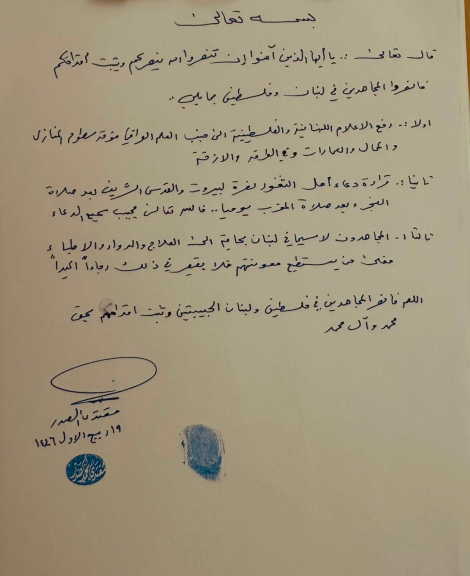 بسمه تعالى
قال تعالى :.. يا أيها الذين آمنوا إن تنصروا الله ينصركم ويثبت أقدامكم
فانصروا المجاهدين في لبنان وفلسطين بما يلي:
اولا:. رفع الاعلام اللبنانية والفلسطينية الى جنب العلم العراقي فوق سطوح المنازل
والمحال والعمارات وفي الطرقة والازقة
ثانيا:. قراءة دعاء أهل الثغور نصرة لبيروت والقدس الشريف بعد صلاة
الفجر وبعد صلاة المغرب يوميا.. فالله تعالى مجيب سميع الدعاء
ثالثا:. المجاهدون لاسيما في لبنان بحاجة الى العلاج والدواء والاطباء
فعلى من يستطيع معونتهم فلا يقصر في ذلك رجاءاً اكيداً
اللهم فانصر المجاهدين في فلسطين ولبنان الحبيبتين وثبت اقدامهم بحق
محمد وآل محمد
مقتدى الصدر
١٩ ربيع الاول ١٤٤٦